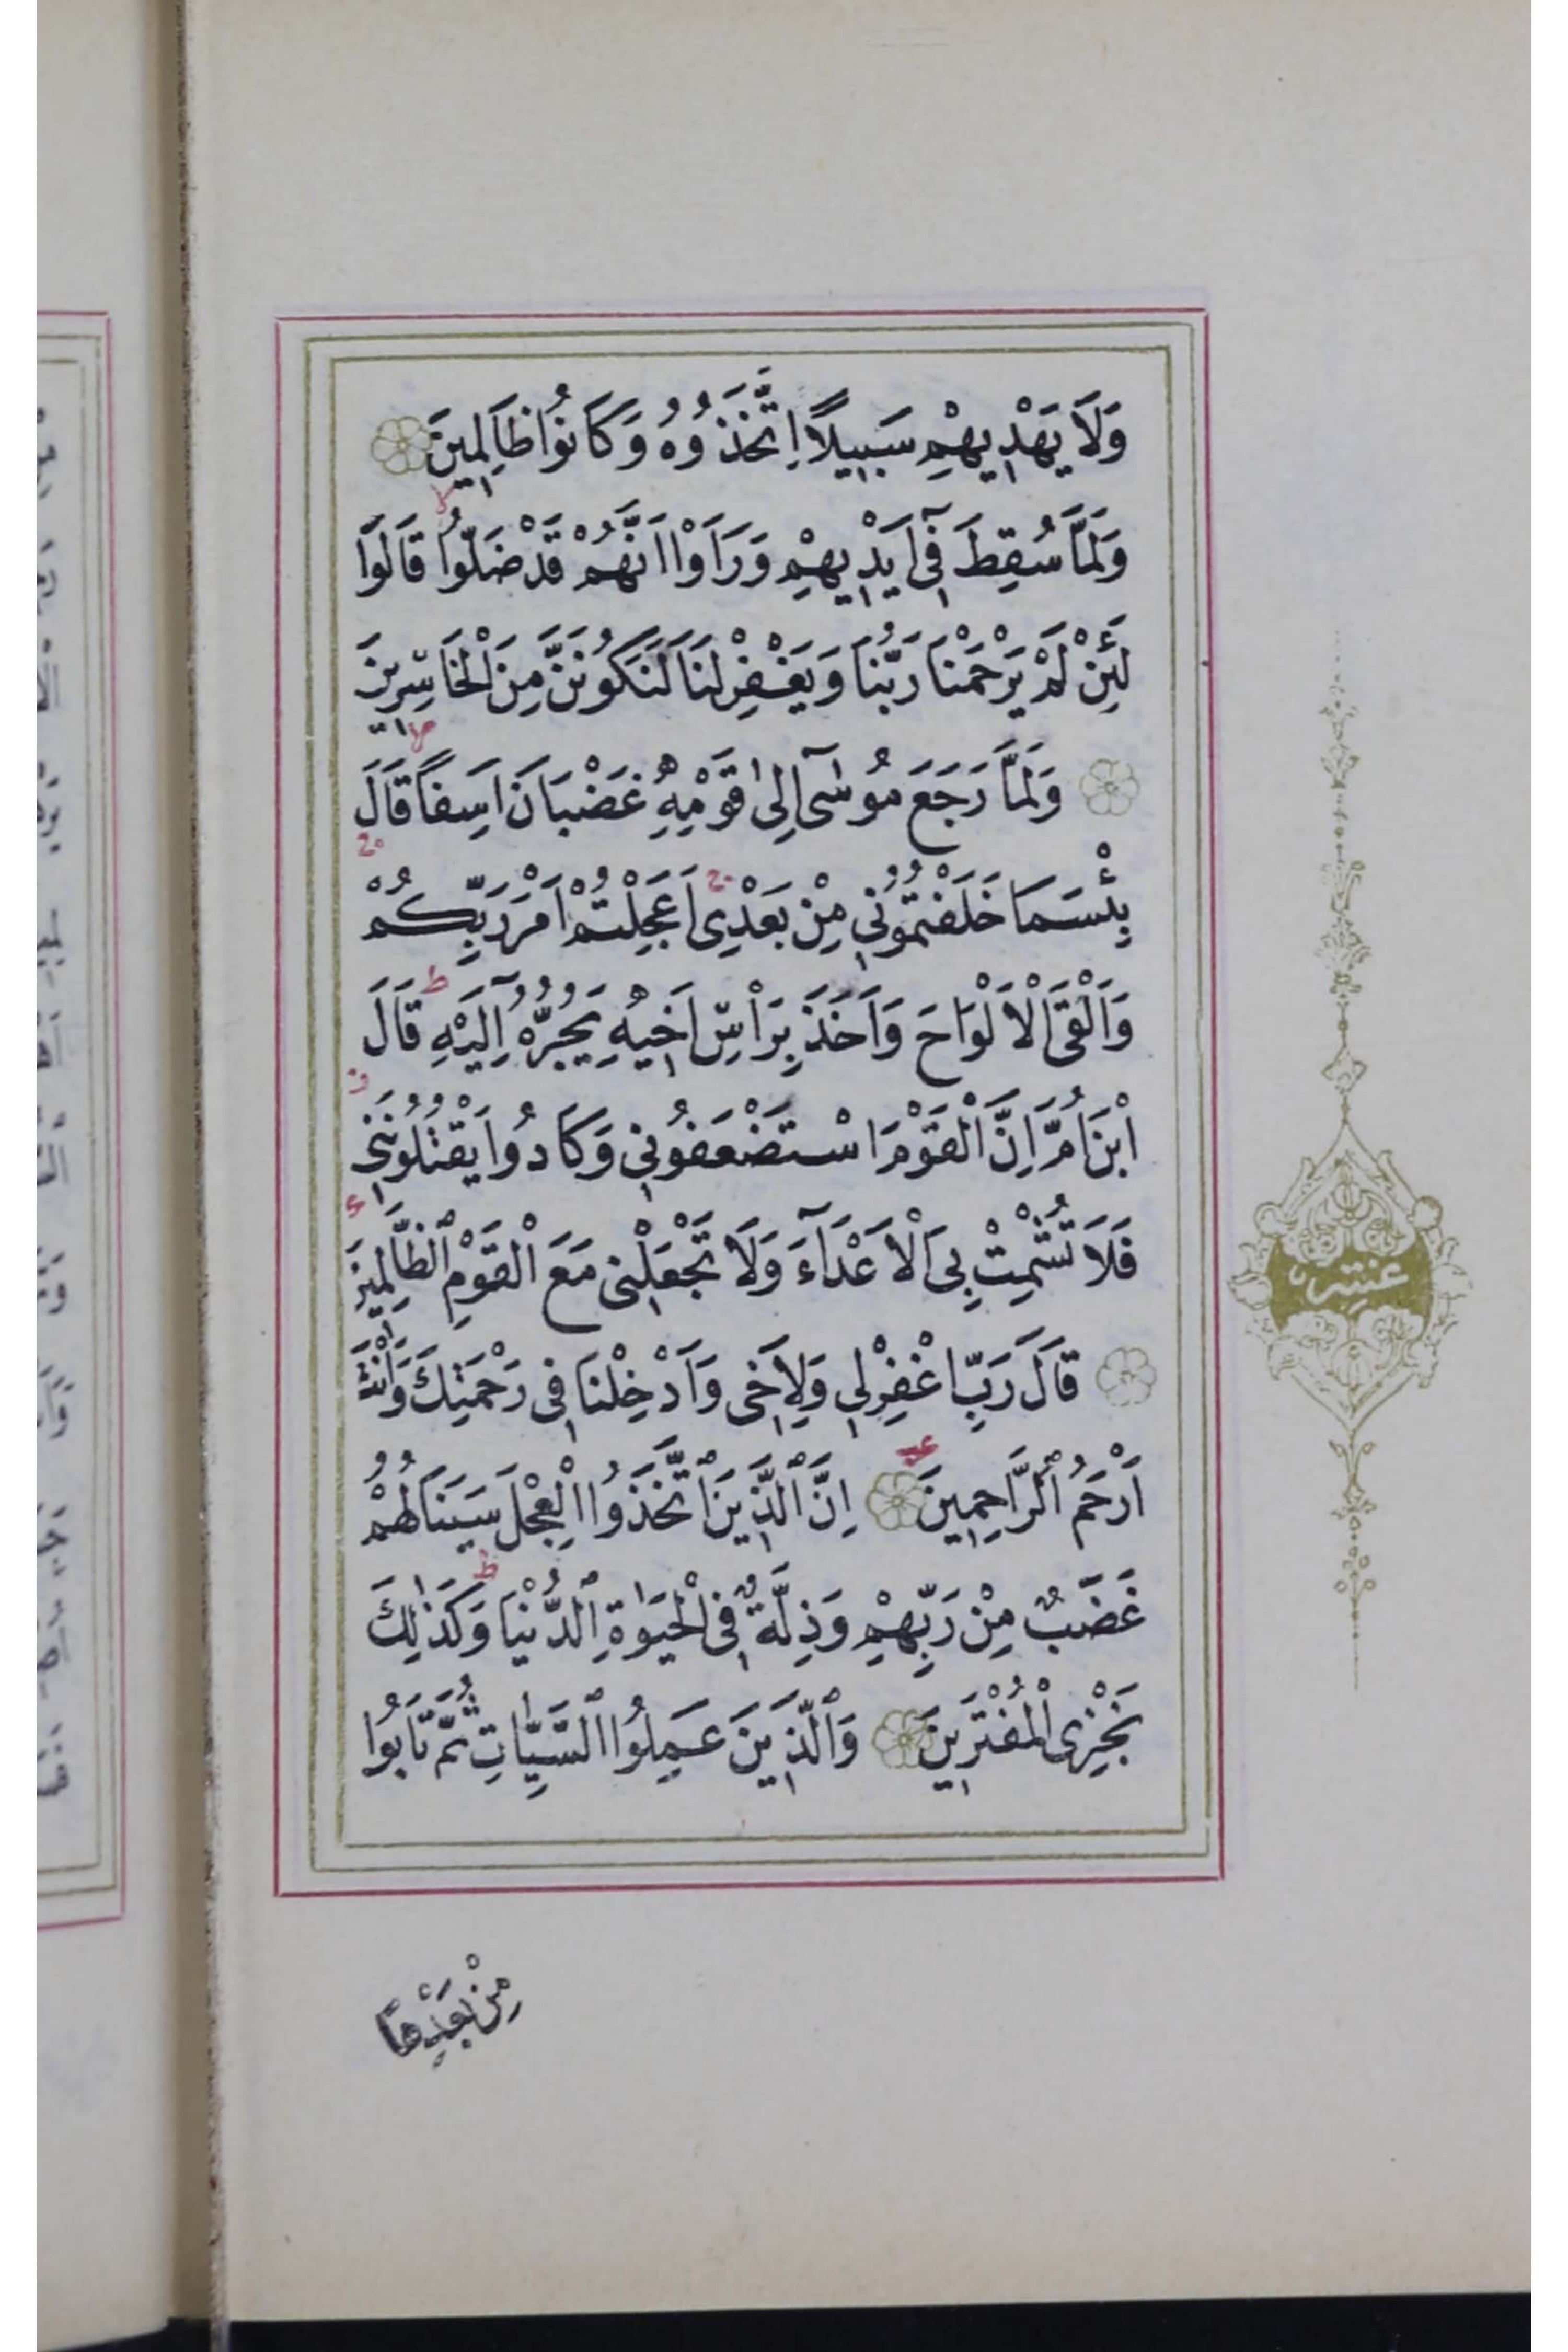 وَلَا يَهْدِيهِمْ سَبِيلًا اِتَّخَذُوهُ وَكَانُوا ظَالِمِينَ
وَلَمَّا سُقِطَ فِٓي اَيْدِيهِمْ وَرَاَوْا اَنَّهُمْ قَدْ ضَلُّوا قَالُوا
لَئِنْ لَمْ يَرْحَمْنَا رَبُّنَا وَيَغْفِرْ لَنَا لَنَكُونَنَّ مِنَ الْخَاسِرِينَ
وَلَمَّا رَجَعَ مُوسٰٓى اِلٰى قَوْمِهِ غَضْبَانَ اَسِفًا قَالَ
بِئْسَمَا خَلَفْتُمُونِي مِنْ بَعْدِي اَعَجِلْتُمْ اَمْرَ رَبِّكُمْ
وَاَلْقَى الْاَلْوَاحَ وَاَخَذَ بِرَاْسِ اَخِيهِ يَجُرُّهُٓ اِلَيْهِ قَالَ
ابْنَ اُمَّ اِنَّ الْقَوْمَ اسْتَضْعَفُونِي وَكَادُوا يَقْتُلُونَنِي
فَلَا تُشْمِتْ بِيَ الْاَعْدَٓاءَ وَلَا تَجْعَلْنِي مَعَ الْقَوْمِ الظَّالِمِينَ
عشر
قَالَ رَبِّ اغْفِرْ لِي وَلِاَخِي وَاَدْخِلْنَا فِي رَحْمَتِكَ وَاَنْتَ
اَرْحَمُ الرَّاحِمِينَ اِنَّ الَّذِينَ اتَّخَذُوا الْعِجْلَ سَيَنَالُهُمْ
غَضَبٌ مِنْ رَبِّهِمْ وَذِلَّةٌ فِي الْحَيٰوةِ الدُّنْيَا وَكَذٰلِكَ
نَجْزِي الْمُفْتَرِينَ وَالَّذِينَ عَمِلُوا السَّيِّاٰتِ ثُمَّ تَابُوا
مِنْ بَعْدِهَا